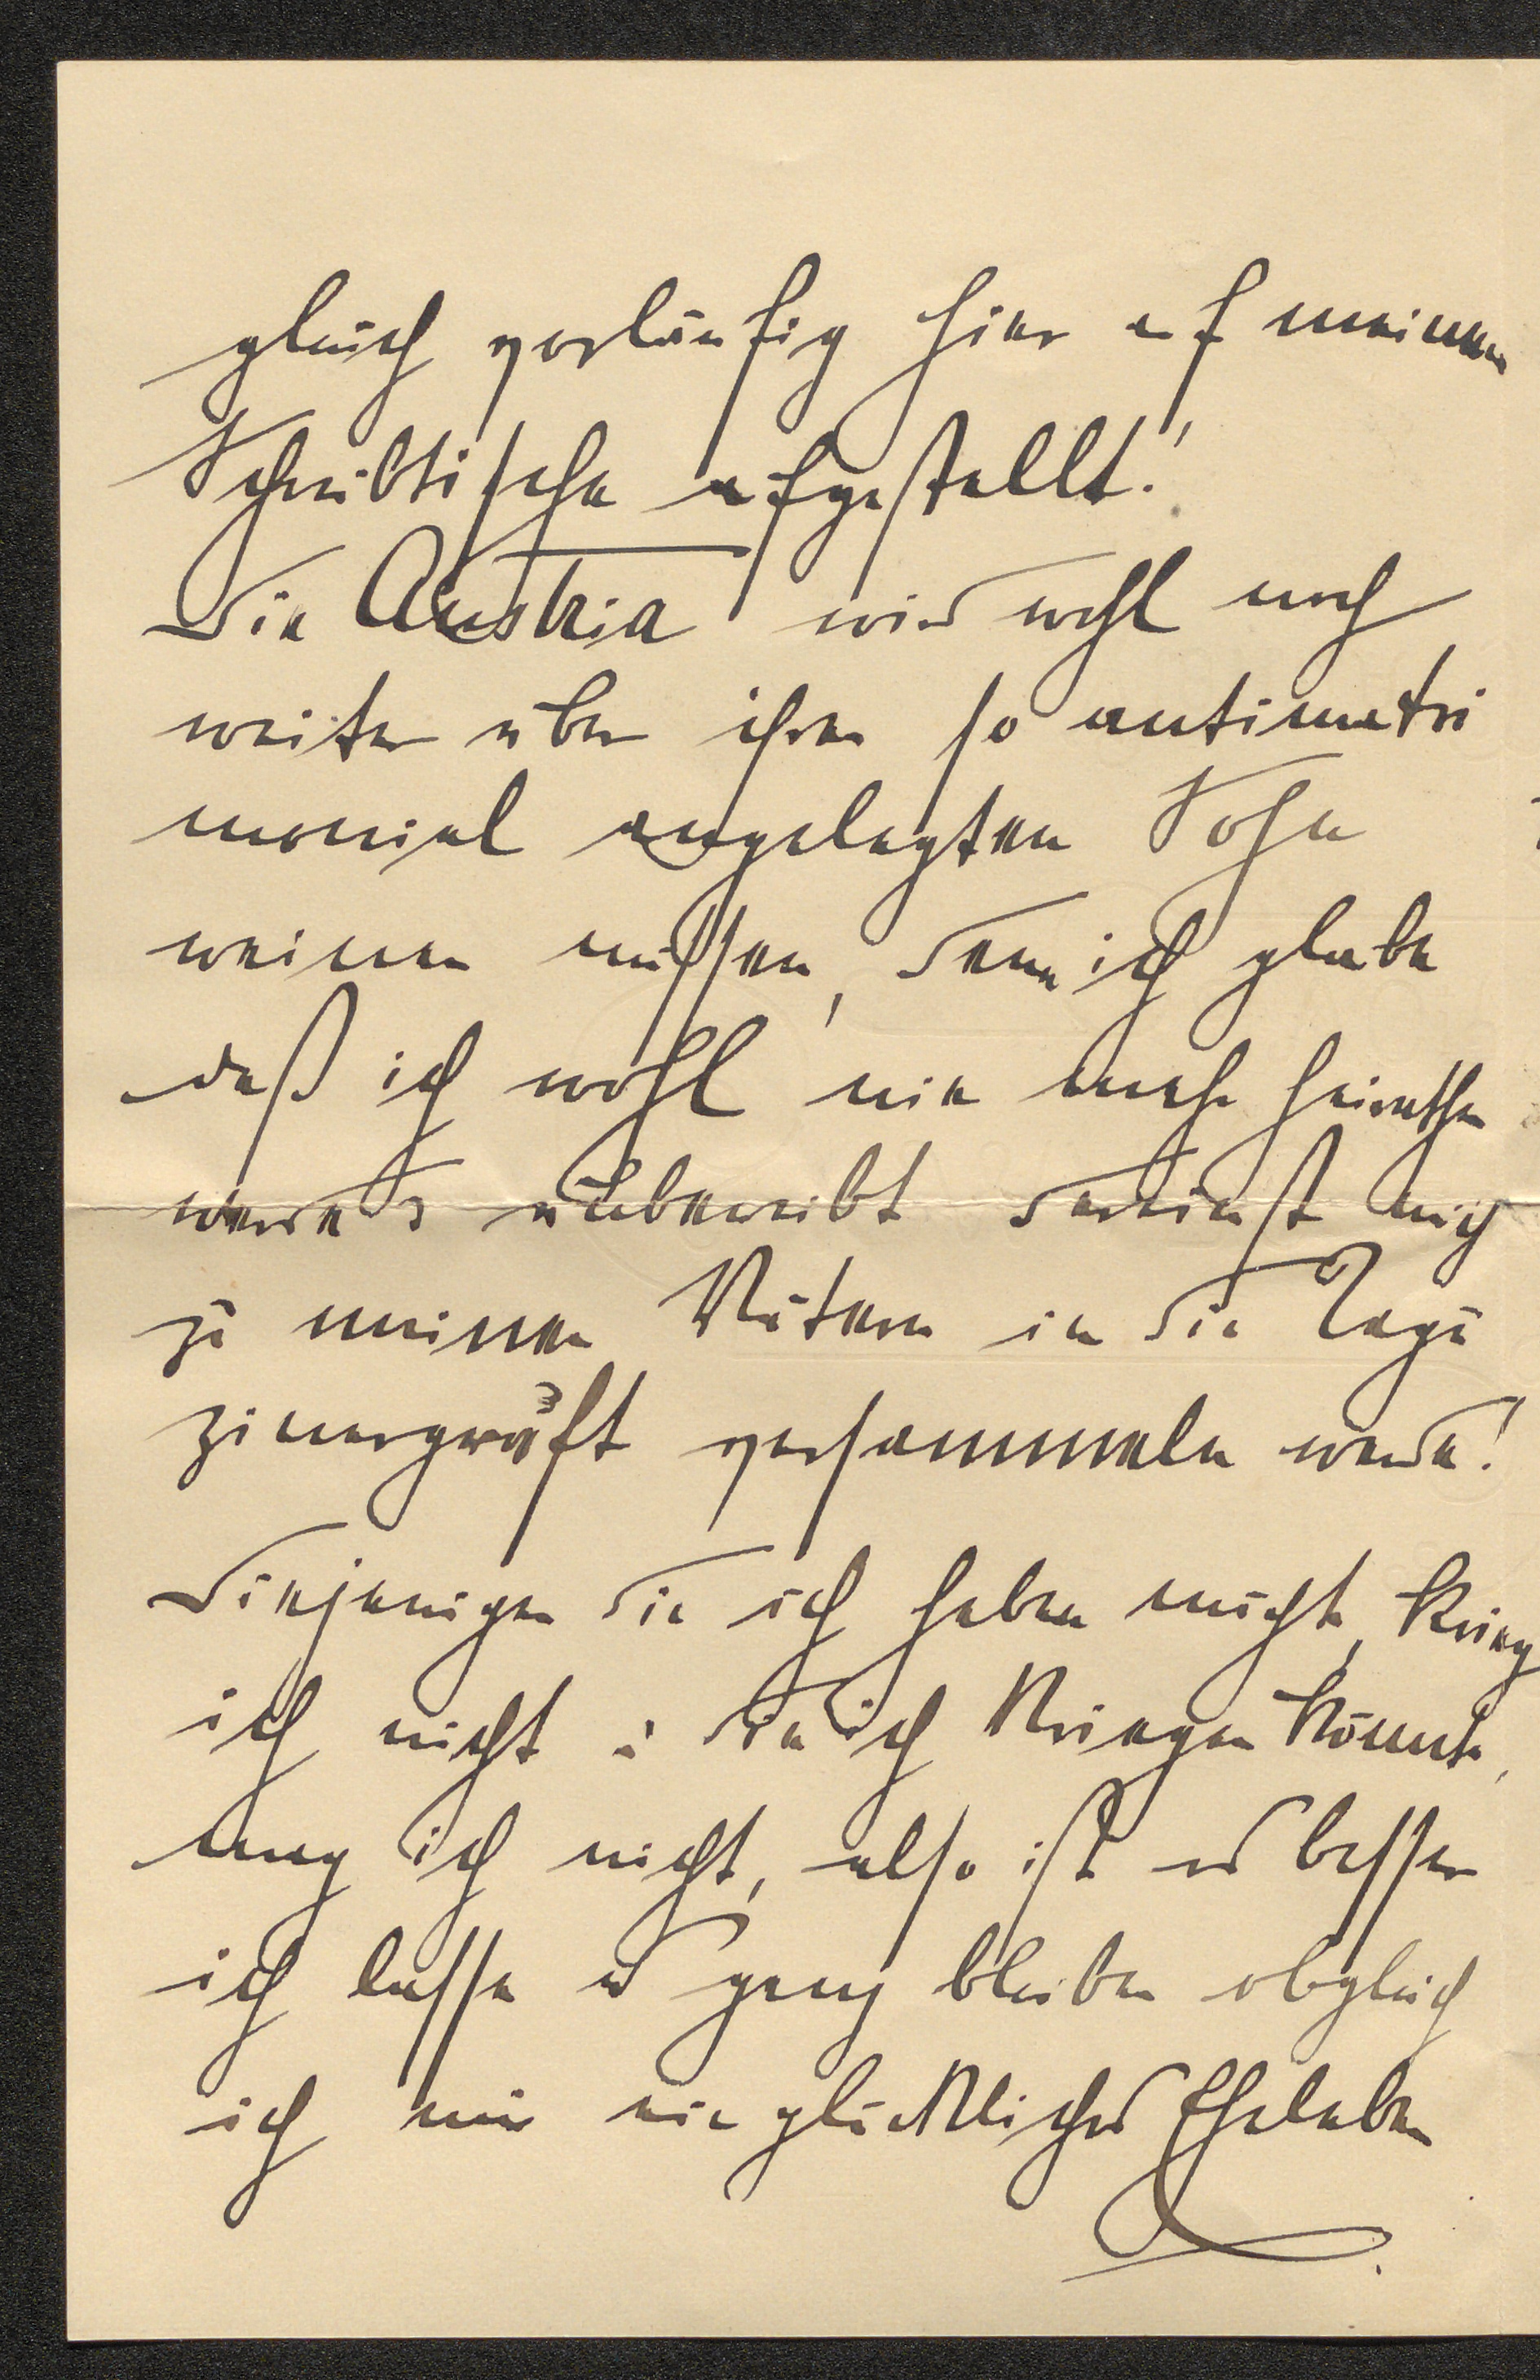 gleich vorläufig hier auf meinem
Schreibtische aufgestellt!
Die Austria wird wohl noch
weiter über ihren so antimatri
monial angelegten Sohn
weinen müssen, denn ich glaube
daß ich wohl nie mehr heirathen
werde u unbeweibt dereinst mich
zu meinen Vätern in die Capu
zinergruft versammeln werde!
Diejenigen die ich haben möcht, krieg
ich nicht u die ich kriegen könnte,
mag ich nicht, also ist es besser
ich lasse es ganz bleiben obgleich
ich mir ein glückliches Eheleben